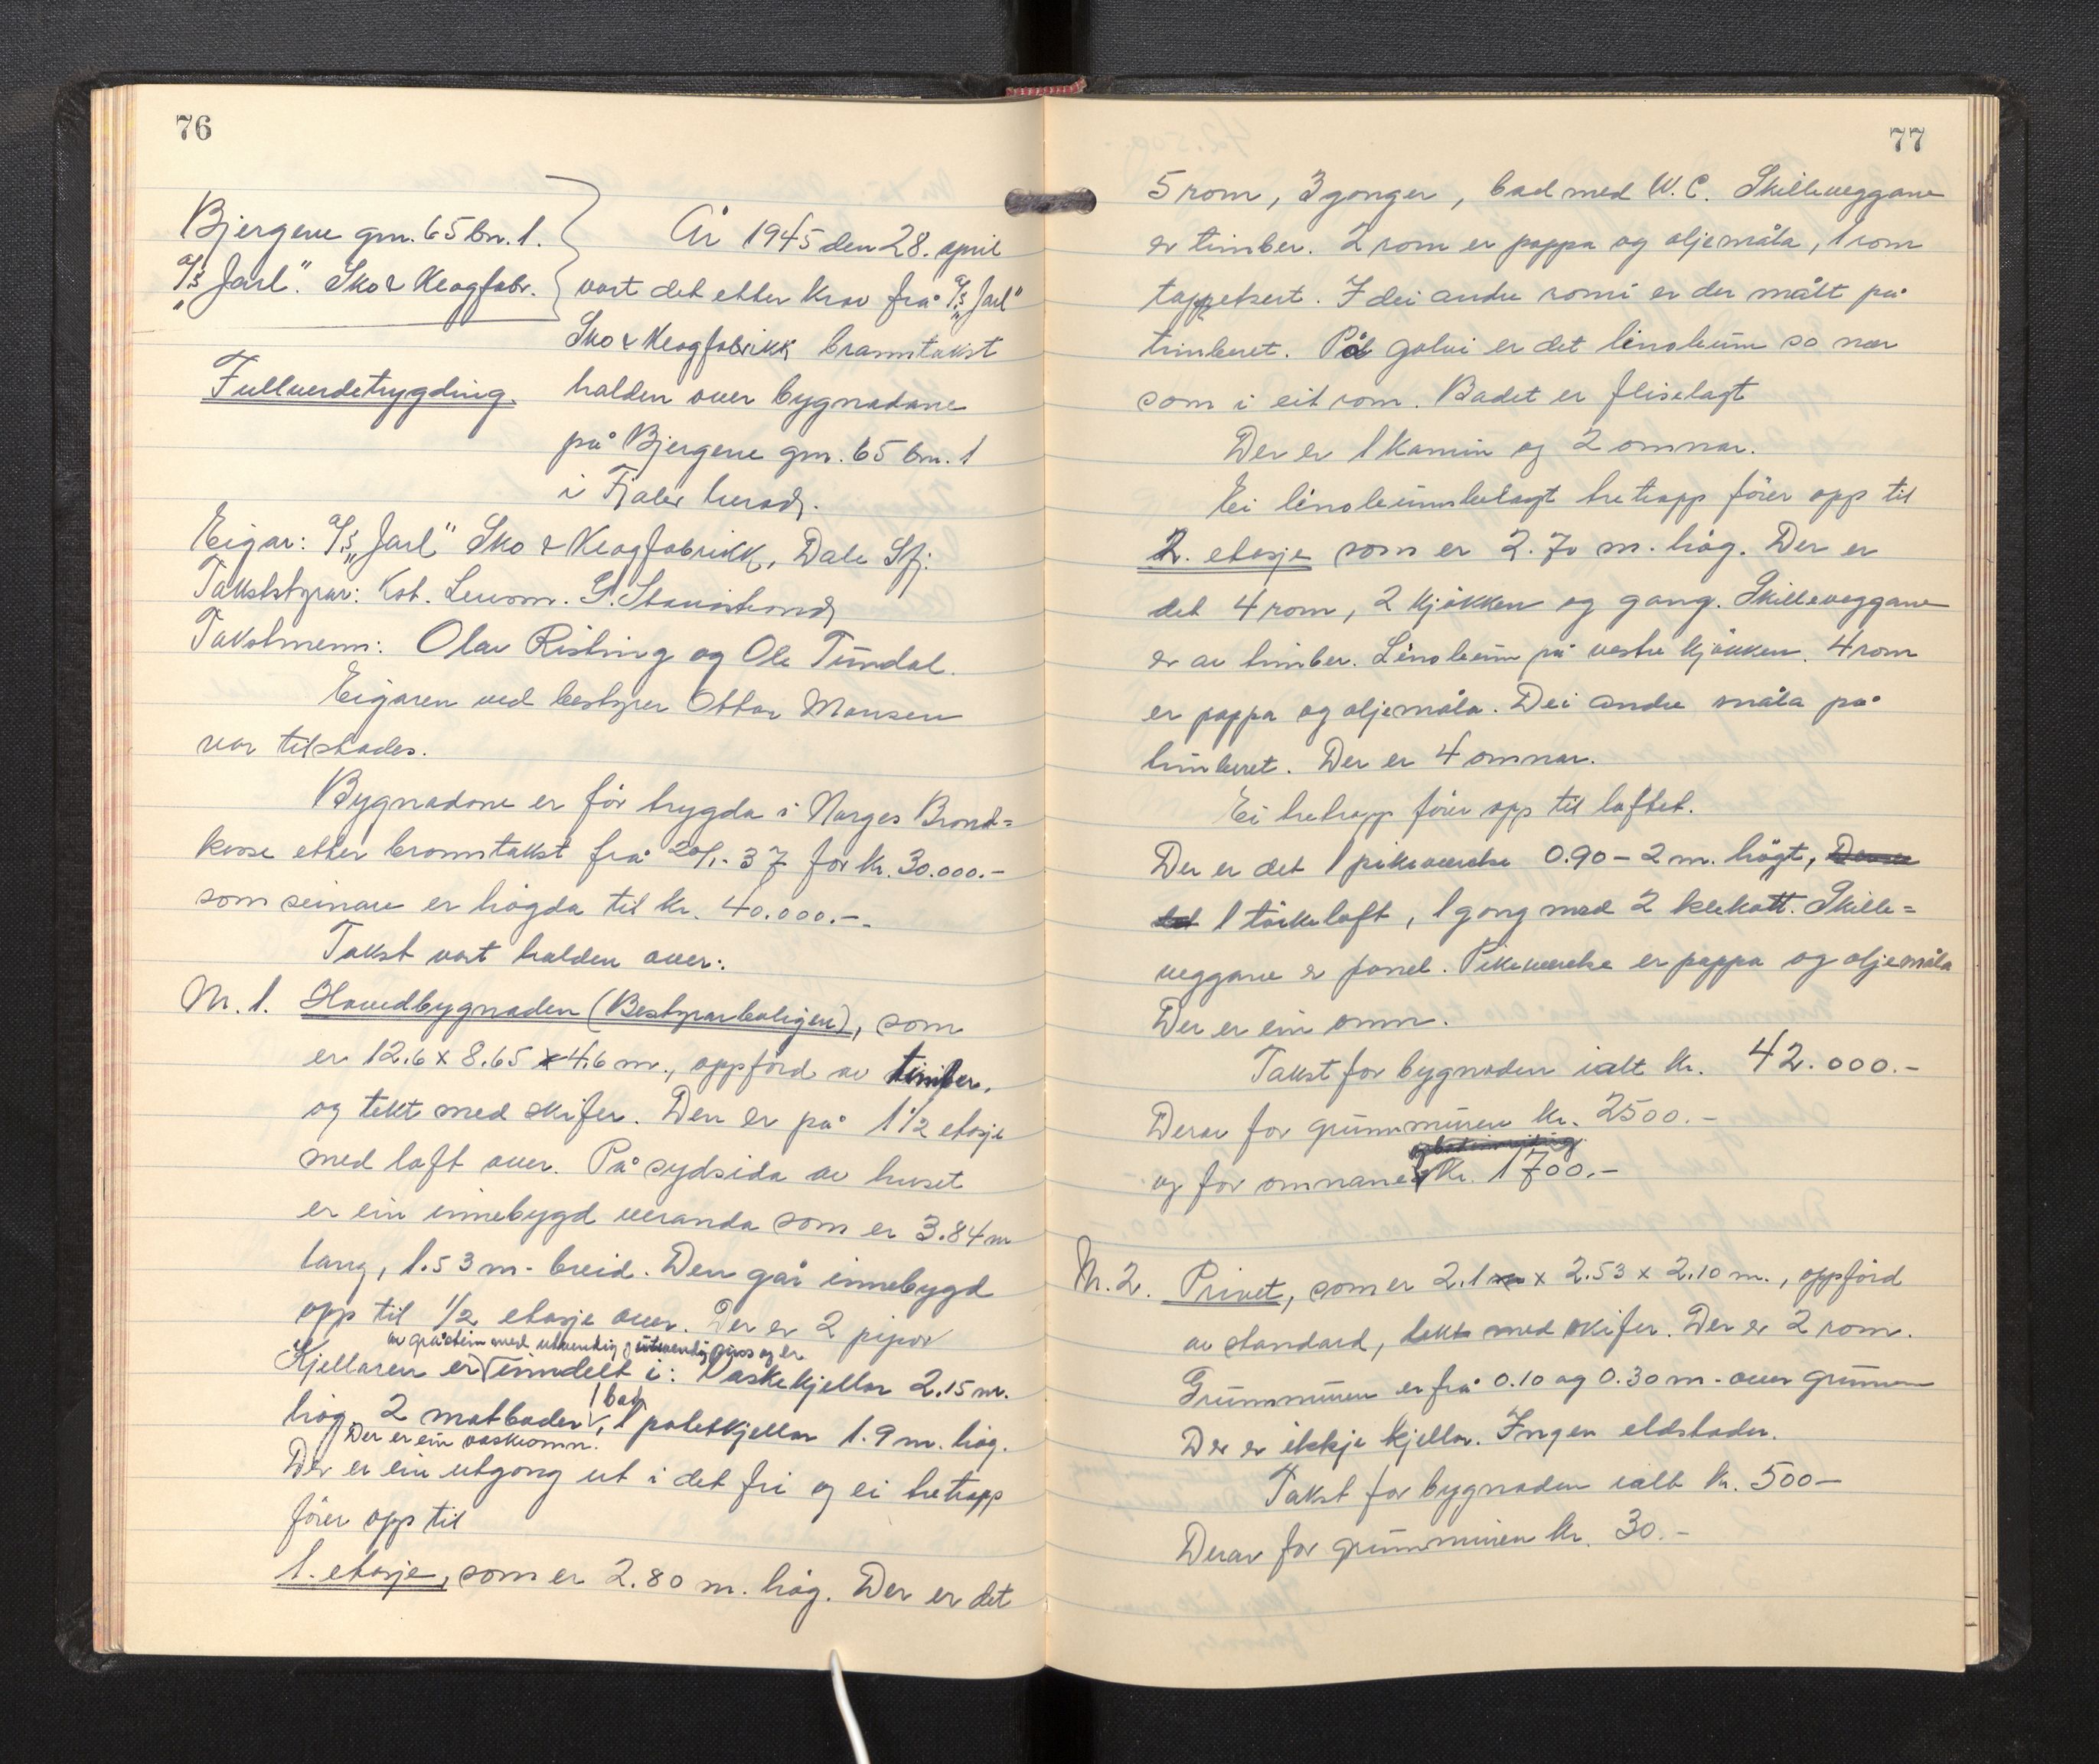 76
Bjergene gnr. 65 bn. 1.
A/s "Jarl". Sko & Plaggfabr.
Fullverdetrygding.
År 1945 den 28. april
vart det etter krav frå A/s "Jarl"
Sko & Plaggfabrikk branntakst
halden over bygnadane
på Bjergene gnr. 65 bnr. 1
i Fjaler herad.
Eigar: A/s "Jarl" Sko & Plaggfabrikk, Dale Sfj.
Takststyrar: Kst. Lensm. S.
Takstmenn: Olav Risting og Ole Tundal.
Eigaren ved bestyrer Ottar Monsen
var tilstades.
Bygnadane er før trygda i Norges Brand=
kasse etter branntakst frå 20/1-37 for kr. 30.000.-
som seinare er högda til kr. 40.000.-.
Takst vart halden over:
Nr. 1. Hovedbygnaden (Bestyrarboligen), som
er 12.6 x 8.65 x 4.6 m., oppförd av timber,
og tekt med skifer. Den er på 1 1/2 etasje
med loft over. På sydsida av huset
er ein innebygd veranda som er 3.84 m
lang, 1.53 m. breid. Den går innebygd
opp til 1/2 etasje over. Der er 2 pipor
av gråstein med utvendig & innvendig puss og er
Kjellaren er inndelt i: Vaskekjellar 2.15 m.
1 bad
høg, 2 matboder, 1 potetkjellar 1.9 m. høg.
Der er ein vaskeomn.
Der er ein utgong ut i det fri og ei tretrapp
förer opp til
1. etasje, som er 2.80 m. høg. Der er det
77
5 rom, 3 gonger, bad med W.C. Skilleveggane
er timber. 2 rom er pappa og oljemåla, 1 rom
tappetsert. I dei andre romi er der målt på
timberet. På golvi er det linoleum so nær
som i eit rom. Badet er fliselagt
Der er 1 kamin og 2 omnar.
Ei linoleumsbelagt tretrapp förer opp til
2. etasje som er 2.70 m. høg. Der er
det 4 rom, 2 kjøkken og gang. Skilleveggane
er av timber. Linoleum på vestre kjøkken. 4 rom
er pappa og oljemåla. Dei andre måla på
timberet. Der er 4 omnar.
Ei tretrapp förer opp til loftet.
Der er det 1 pikeværelse 0.90 - 2 m. högt,
1 törkeloft, 1 gong med 2 klekott. Skille=
veggane er panel. Pikeværelse er pappa og oljemåla
Der er ein omn.
Takst for bygnaden ialt kr. 42.000.-
Derav for grunnmuren kr. 2500.-
og for omnane kr. 1700.-
Nr. 2. Privet, som er 2.1 x 2.53 x 2.10 m., oppförd
av standard, tekt med skifer. Der er 2 rom.
Grunnmuren er frå 0.10 og 0.30 m. over grunnen
Der er ikkje kjellar. Ingen eldstader.
Takst for bygnaden ialt kr. 500-
Derav for grunnmuren kr. 30.-